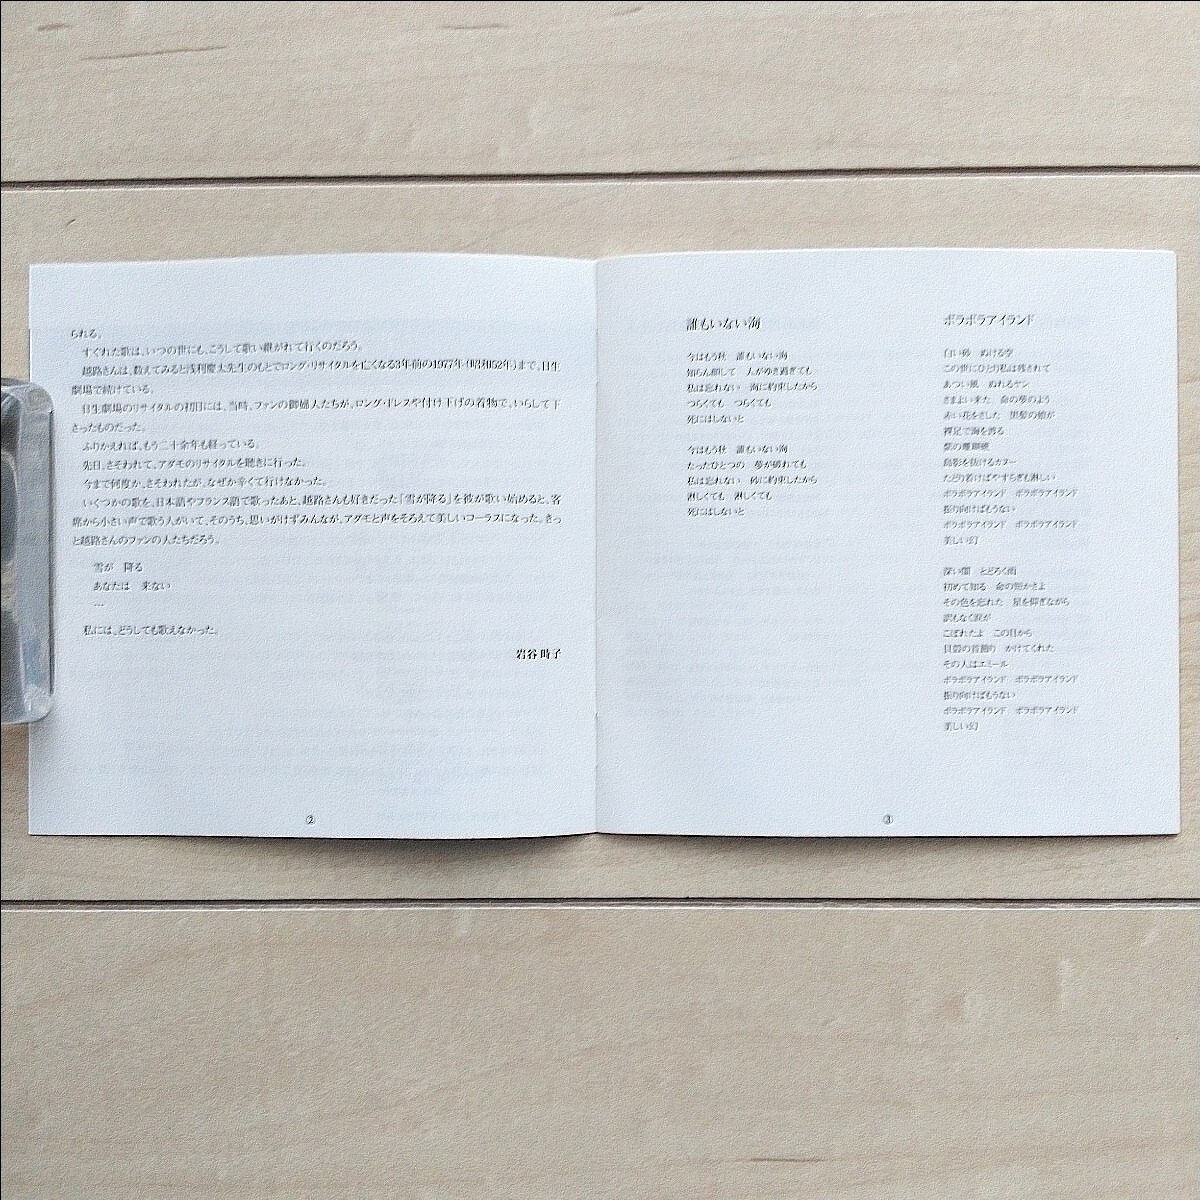 られる。
すぐれた歌は、いつの世にも、こうして歌い継がれて行くのだろう。
越路さんは、数えてみると浅利慶太先生のもとでロング・リサイタルを亡くなる3年前の1977年(昭和52年)まで、日生
劇場で続けている。
日生劇場のリサイタルの初日には、当時、ファンの御婦人たちが、ロング・ドレスや付け下げの着物で、いらして下
さったものだった。
ふりかえれば、もう二十余年も経っている。
先日、さそわれて、アダモのリサイタルを聴きに行った。
今まで何度か、さそわれたが、なぜか辛くて行けなかった。
いくつかの歌を、日本語やフランス語で歌ったあと、越路さんも好きだった「雪が降る」を彼が歌い始めると、客
席から小さい声で歌う人がいて、そのうち、思いがけずみんなが、アダモと声をそろえて美しいコーラスになった。きっ
と越路さんのファンの人たちだろう。
雪が　降る
あなたは　来ない
…
私には、どうしても歌えなかった。
岩谷 時子
②
誰もいない海
今はもう秋　誰もいない海
知らん顔して　人がゆき過ぎても
私は忘れない　海に約束したから
つらくても　つらくても
死にはしないと
今はもう秋　誰もいない海
たったひとつの　夢が破れても
私は忘れない　砂に約束したから
淋しくても　淋しくても
死にはしないと
ボラボラアイランド
白い砂　ぬける空
この世にひとり私は残されて
あつい風　ぬれるヤシ
さまよい来た　命の夢のよう
赤い花をさした　黒髪の娘が
裸足で海を渡る
紫の珊瑚礁
島影を抜けるカヌー
たどり着けばやすらぎも淋しい
ボラボラアイランド　ボラボラアイランド
振り向けばもうない
ボラボラアイランド　ボラボラアイランド
美しい幻
深い闇　とどろく雨
初めて知る　命の短かさよ
その色を忘れた　星を仰ぎながら
訳もなく涙が
こぼれたよ　この目から
貝殻の首飾り　かけてくれた
その人はエミール
ボラボラアイランド　ボラボラアイランド
振り向けばもうない
ボラボラアイランド　ボラボラアイランド
美しい幻
③